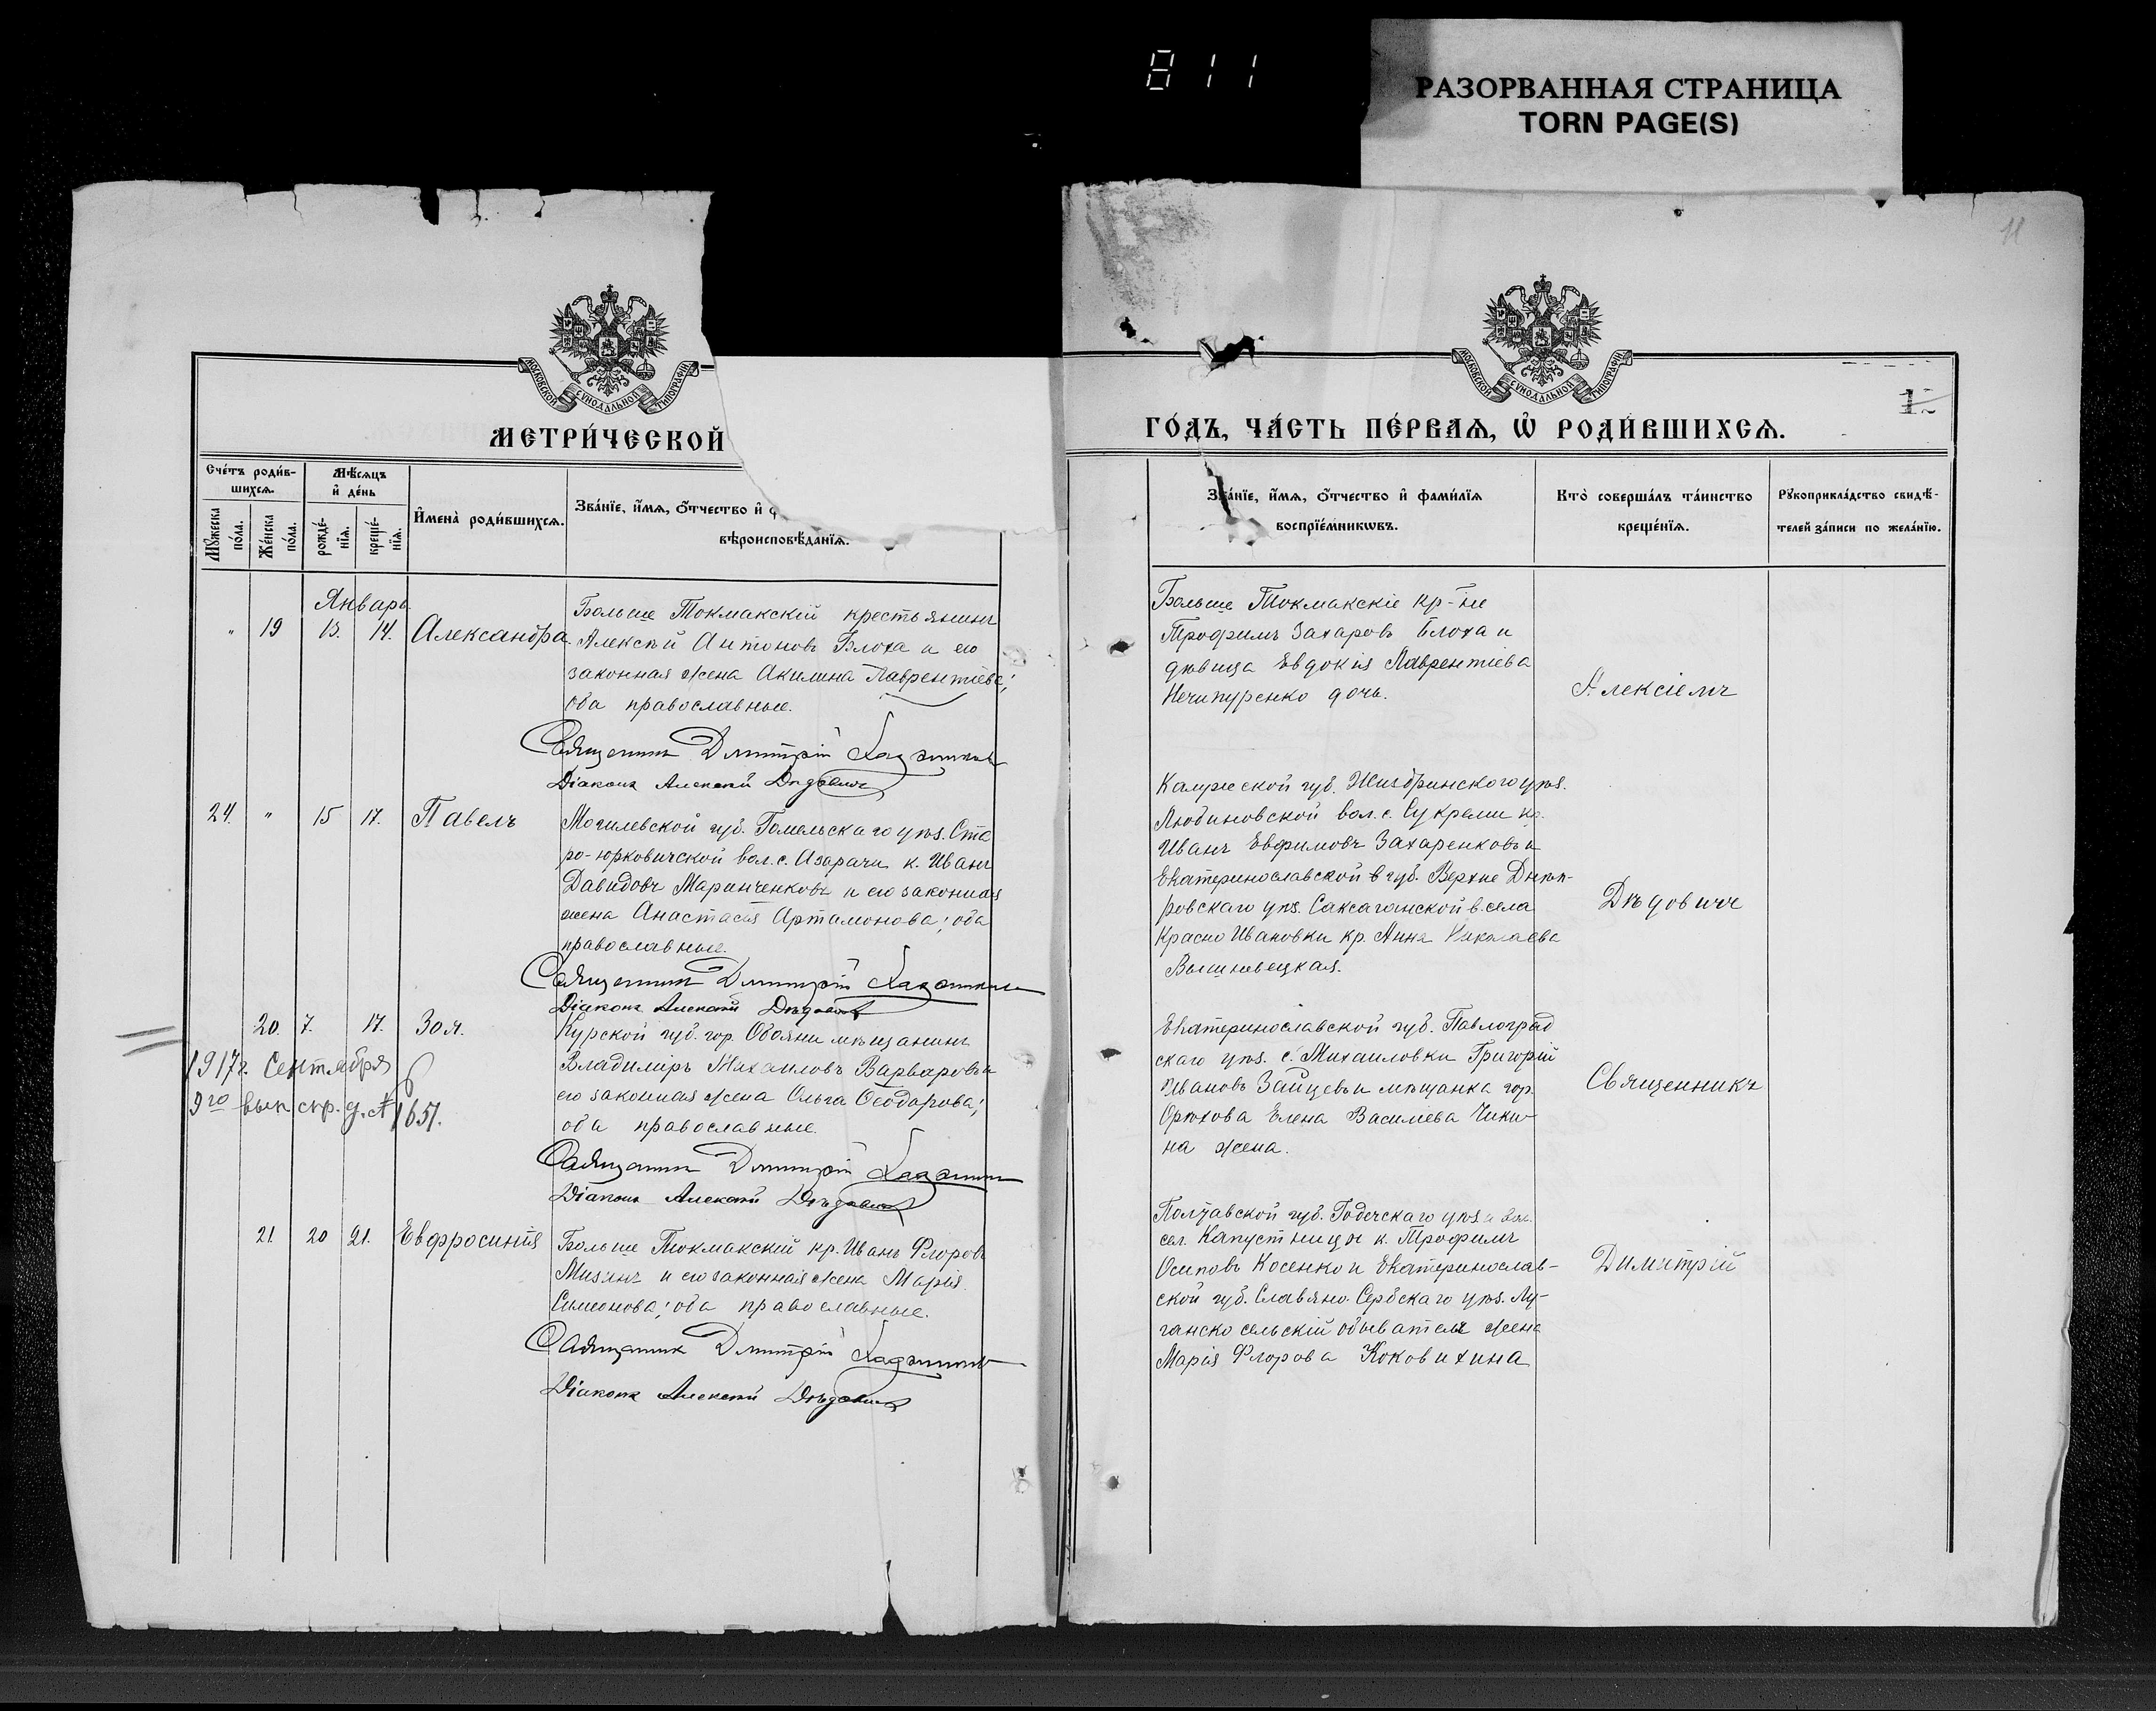 811
РАЗОРВАННАЯ СТРАНИЦА
TORN PAGE(S)
11
МОСКОВСКОЙ СѴНОДАЛЬНОЙ ТИПОГРАФІИ
МЕТРИ́ЧЕСКОЙ
Сче́тъ роди́в-
шихсѧ.
Мѣ́сѧцъ
и҆ де́нь
И҆мена̀ роди́вшихсѧ.
Зва́нїе, и҆́мѧ, ѻ҆́тчество и҆
вѣроисповѣ́данїѧ.
Мꙋ́жеска по́ла.
Же́нска по́ла.
рожде́-нїѧ.
креще́-нїѧ.
Январь.
" 19 13. 14. Александра.
Больше Токмакскій крестьянинъ
Алексѣй Антоновъ Блоха и его
законная жена Акилина Лаврентіева;
оба православные.
Священник Дмитрій
Діаконъ Алексѣй Дѣдович
24. " 15 17. Павелъ
Могилевской губ. Гомельскаго уѣз. Ста
ро-юрковичской вол. с. Азарачи к. Иванъ
Давидовъ Маринченковъ и его законная
жена Анастасія Артамонова; оба
православные.
Священник Дмитрій
Діаконъ Алексѣй Дѣдович
20. 7. 17. Зоя.
Курской губ. гор. Обояни мѣщанинъ
Владиміръ Михаиловъ Варваровъ и
его законная жена Ольга Ѳеодорова;
оба православные.
1917г. Сентября
9го вып. скр. д. № 1651.
Священник Дмитрій
Діаконъ Алексѣй Дѣдович
21. 20 21. Евфросинія
Больше Токмакскій кр. Иванъ Флоровъ
Мизинъ и его законная жена Марія
Симеонова; оба православные.
Священник Дмитрій
Діаконъ Алексѣй Дѣдович
МОСКОВСКОЙ СѴНОДАЛЬНОЙ ТИПОГРАФІИ
ГО́ДЪ, ЧА́СТЬ ПЕ́РВАѦ, Ѡ҆ РОДИ́ВШИХСѦ.
Зва́нїе, и҆́мѧ, ѻ҆́тчество и҆ фами́лїѧ
воспрїе́мникѡвъ.
Кто̀ соверша́лъ та́инство
креще́нїѧ.
Рꙋкоприкла́дство свидѣ́-
телей за́писи по жела́нїю.
Больше Токмакскіе кр-не
Трофимъ Захаровъ Блоха и
дѣвица Евдокія Лаврентіева
Нечипуренко дочь.
Алексіемъ
Калужской губ. Жиздринскаго уѣз.
Любиновской вол. с. Сукремли кр.
Иванъ Евфимовъ Захаренковъ и
Екатеринославской губ. Верхне Днѣп-
ровскаго уѣз. Саксаганской в. села
Красно Ивановки кр. Анна Николаева
Вышневецкая.
Дѣдовичъ
Екатеринославской губ. Павлоград
скаго уѣз. с. Михаиловки Григорій
Ивановъ Зайцевъ и мѣщанка гор.
Орѣхова Елена Василева Чики-
на жена.
Священникъ
Полтавской губ. Годячскаго уѣз. и вол.
сел. Капустницы к. Трофимъ
Осиповъ Косенко и Екатеринослав-
ской губ. Славяно Сербскаго уѣз. Лу-
ганско сельскій обывателя жена
Марія Флорова Коковихина
Димитрій